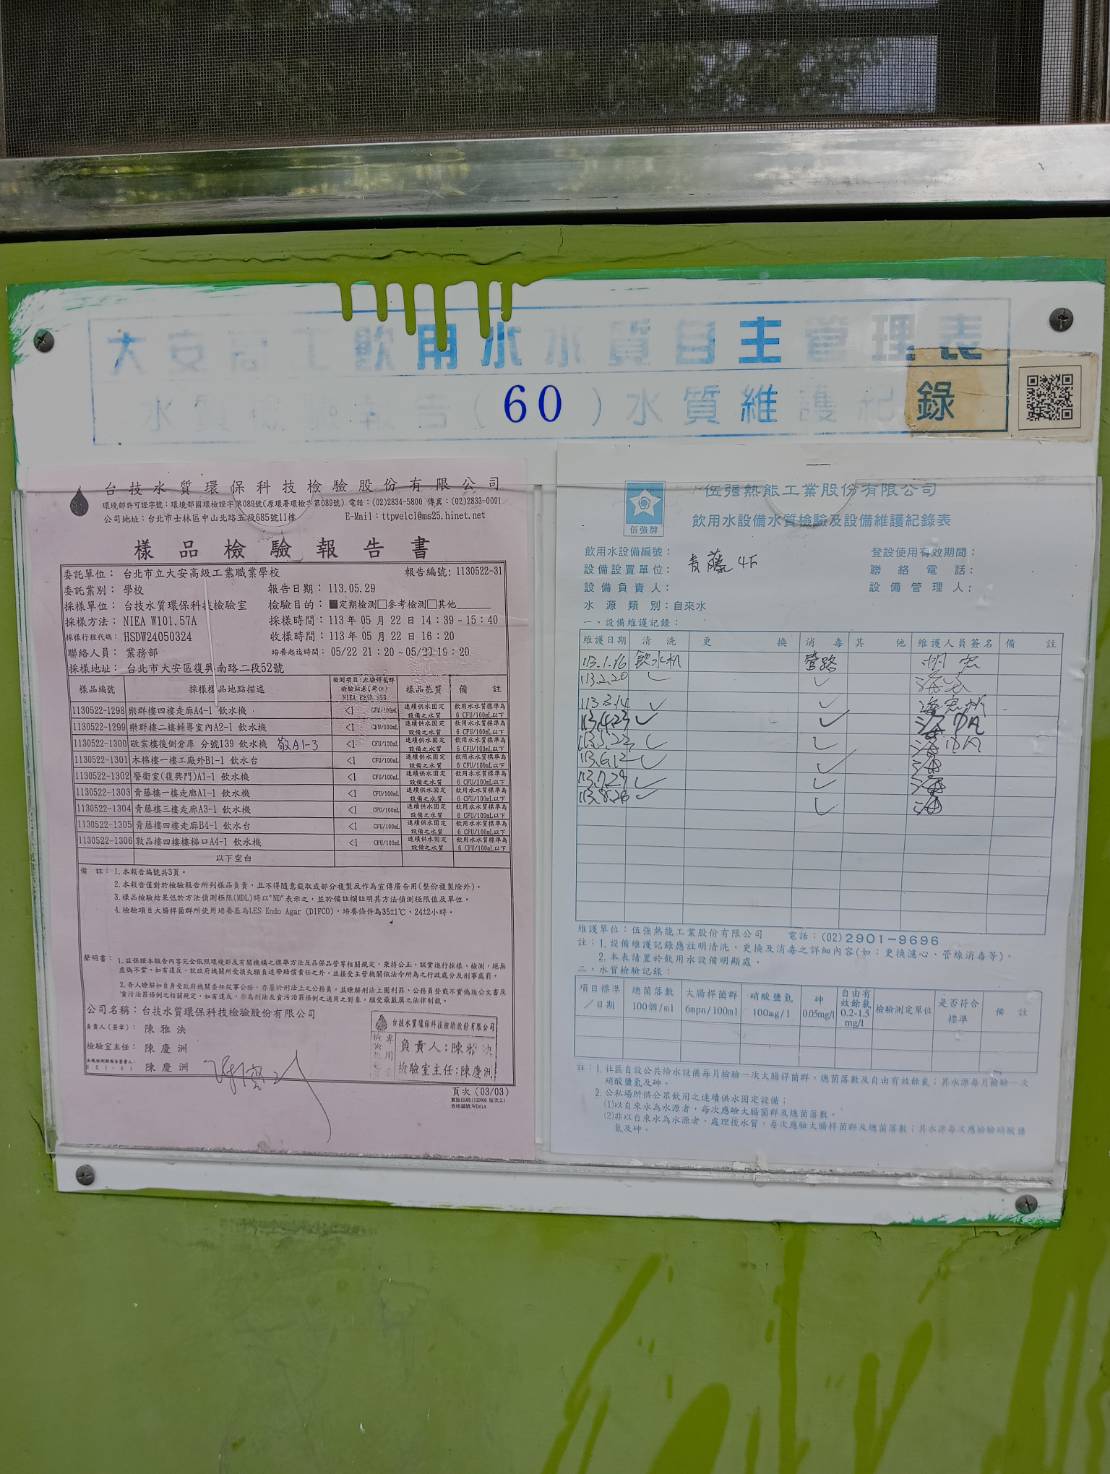 大安高工飲用水水質自主管理表
水質檢驗報告(60)水質維護紀錄
台技水質環保科技檢驗股份有限公司
環境部許可證字號:環境部國環檢證字第089號(原環署環檢字第089號) 電話:(02)2834-5800 傳真:(02)2833-0001
公司地址:台北市士林區中山北路五段685號11樓 E-Mail:ttpwelcl@ms25.hinet.net
樣品檢驗報告書
委託單位:台北市立大安高級工業職業學校 報告編號:1130522-31
委託業別:學校 報告日期:113.05.29
採樣單位:台技水質環保科技檢驗室 檢驗目的:■定期檢測□參考檢測□其他
採樣方法:NIEA W101.57A 採樣時間:113 年 05 月 22 日 14:39-15:40
採樣行程代碼:HSDW24050324 收樣時間:113 年 05 月 22 日 16:20
聯絡人員:業務部 培養起迄時間:05/22 21:20~05/23 19:20
採樣地址:台北市大安區復興南路二段52號
樣品編號 採樣樣品地點描述 樣品基質 備註
1130522-1298 樂群樓四樓走廊A4-1 飲水機 <1 CFU/100mL 連續供水固定設備之水質 飲用水水質標準為6 CFU/100mL以下
1130522-1299 樂群樓二樓輔導室內A2-1 飲水機 <1 CFU/100mL 連續供水固定設備之水質 飲用水水質標準為6 CFU/100mL以下
1130522-1300 啟客樓後側倉庫 分號139 飲水機 A1-3 <1 CFU/100mL 連續供水固定設備之水質 飲用水水質標準為6 CFU/100mL以下
1130522-1301 木棉樓一樓二廠外B1-1 飲水台 <1 CFU/100mL 連續供水固定設備之水質 飲用水水質標準為6 CFU/100mL以下
1130522-1302 警衛室(復興門)A1-1 飲水機 <1 CFU/100mL 連續供水固定設備之水質 飲用水水質標準為6 CFU/100mL以下
1130522-1303 青藤樓一樓走廊A1-1 飲水機 <1 CFU/100mL 連續供水固定設備之水質 飲用水水質標準為6 CFU/100mL以下
1130522-1304 青藤樓三樓走廊A3-1 飲水機 <1 CFU/100mL 連續供水固定設備之水質 飲用水水質標準為6 CFU/100mL以下
1130522-1305 青藤樓四樓走廊B4-1 飲水台 <1 CFU/100mL 連續供水固定設備之水質 飲用水水質標準為6 CFU/100mL以下
1130522-1306 敦品樓四樓樓梯口A4-1 飲水機 <1 CFU/100mL 連續供水固定設備之水質 飲用水水質標準為6 CFU/100mL以下
以下空白
備註:1.本報告編號共3頁。
2.本報告僅對於檢驗報告所列樣品負責,且不得隨意截取或部分複製及作為宣傳廣告用(整份複製除外)。
3.樣品檢驗結果低於方法偵測極限(MDL)時以"ND"表示之,並於備註欄註明其方法偵測極限值及單位。
4.檢驗項目大腸桿菌群所使用培養基為LES Endo Agar (DIFCO),培養條件為35±1℃,24±2小時。
聲明書:
公司名稱:台技水質環保科技檢驗股份有限公司
負責人(簽章):陳雅泱
檢驗室主任:陳慶洲
陳慶洲
台技水質環保科技檢驗股份有限公司
負責人:陳雅泱
檢驗室主任:陳慶洲
頁次(03/03)
伍強牌
伍強熱能工業股份有限公司
飲用水設備水質檢驗及設備維護紀錄表
飲用水設備編號: 登設使用有效期間:
設備設置單位:青藤4F 聯絡電話:
設備負責人: 設備管理人:
水源類別:自來水
一、設備維護記錄:
維護日期 清洗 更換 消毒 其他 維護人員簽名 備註
113.1.16 飲水机 管路
113.2.20 ✓
113.3.14 ✓
113.4.23 ✓ ✓
113.5.22 ✓ ✓
113.6.12 ✓ ✓
113.7.29 ✓ ✓
113.8.26 ✓ ✓
維護單位:伍強熱能工業股份有限公司 電話:(02)2901-9696
註:1.設備維護記錄應註明清洗、更換及消毒之詳細內容(如:更換濾心、管線消毒等)。
2.本表請置於飲用水設備明顯處。
二、水質檢驗記錄:
項目標準/日期 總菌落數100個/ml 大腸桿菌群6mpn/100ml 硝酸鹽氮100mg/l 砷0.05mg/l 自由有效餘氯0.2-1.5mg/l 檢驗測定單位 是否符合標準 備註
註:1.社區自設公共給水設備每月檢驗一次大腸桿菌群、總菌落數及自由有效餘氯;其水源每月檢驗一次
硝酸鹽氮及砷。
2.公私場所供公眾飲用之連續供水固定設備:
(1)以自來水為水源者,每次應驗大腸菌群及總菌落數。
(2)非以自來水為水源者,處理後水質,每次應驗大腸桿菌群及總菌落數;其水源每次應檢驗硝酸鹽
氮及砷。